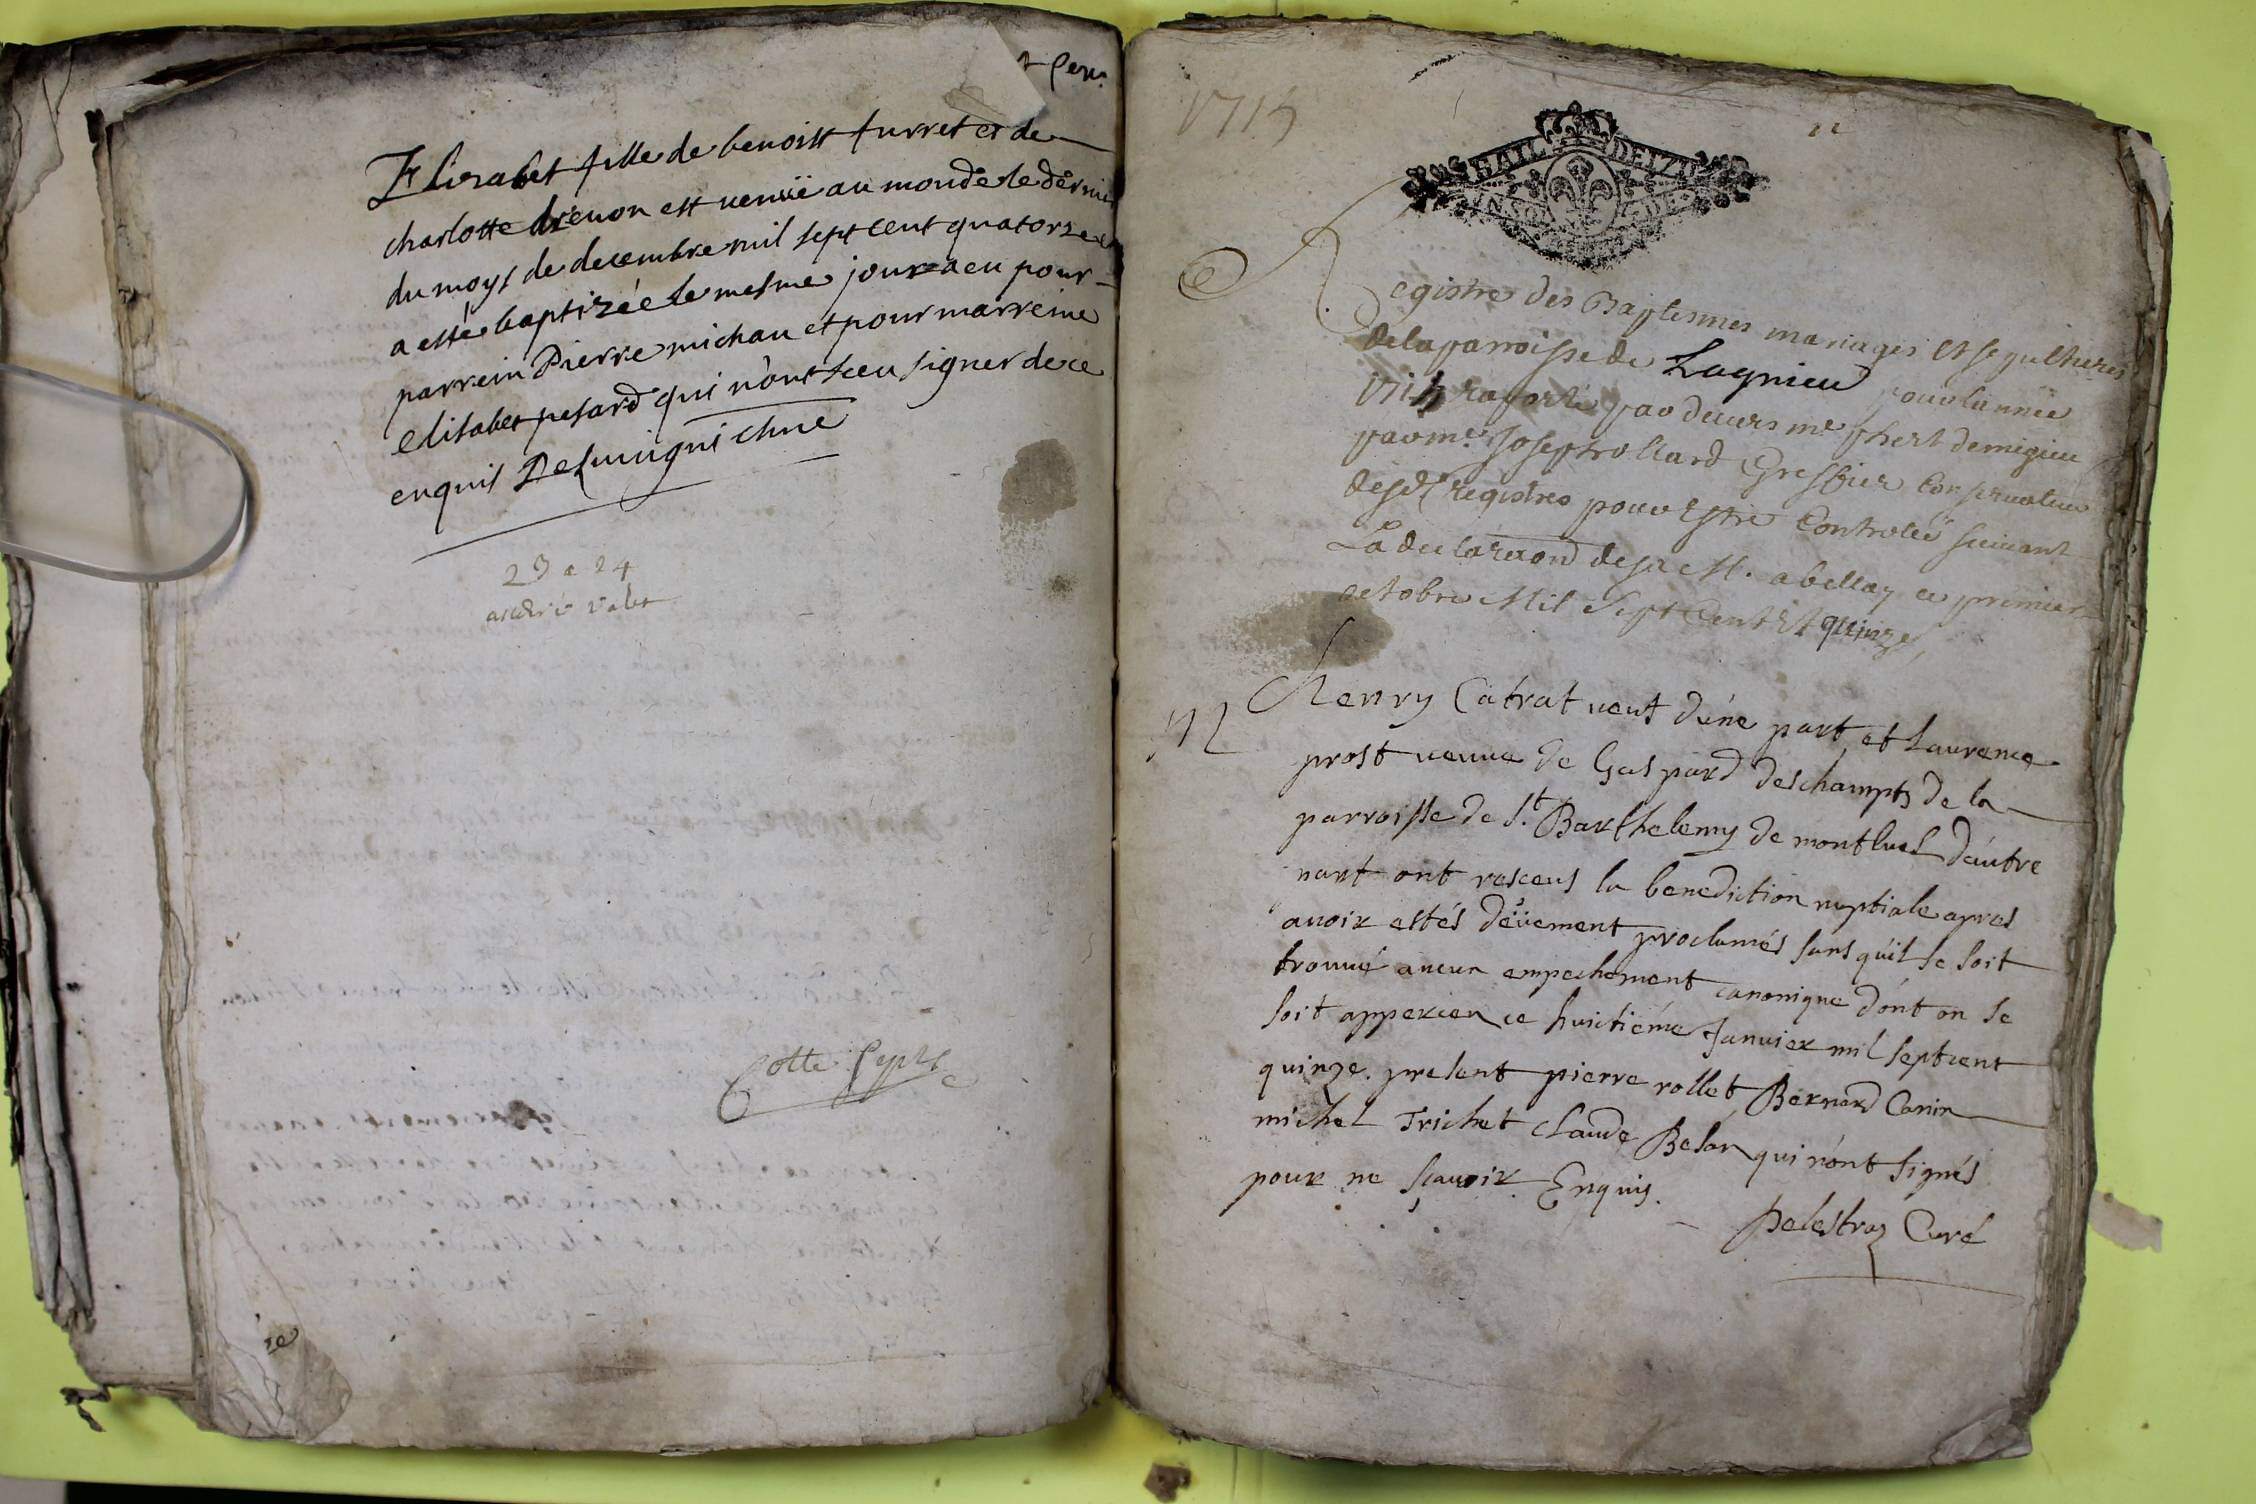 Elizabet fille de benoist furret et de
charlotte drevon est venuë au monde le dernier
du moys de decembre mil sept cent quatorze et
a esté baptizée le mesme jour a eu pour
parrein Pierre michau et pour marreine
elisabet pesard qui n'ont sceu signer de ce
enquis
23 a 24
Cotte
1715
BAIL DE IZ
Registre des Baptesmes mariages et sepultures
de la parroisse de Lagnieu pour l'année
par me. Joseph rollard Greffier Conservateur
desd registres pour Estre Controlée suivant
La declaraon de sa M. a bellay ce premier
octobre Mil Sept Cent Et quinze
M
henry Catrat veuf d'úne part, et Laurence
prost veuve de Gaspard deschamps de la
parroisse de St. Barthelemy de montluel d'autre
part ont resceus la benediction nuptiale apres
avoir estés deüement proclamés sans qu'il se soit
trouvé aucun empechement canonique d'ont on se
soit apperceu ce huictiéme Janvier mil septcent
quinze. present pierre rollet Bernard Canin
michel Trichet Claude Belan qui n'ont signés
pour ne sçavoir Enquis.
Delestraz Curé